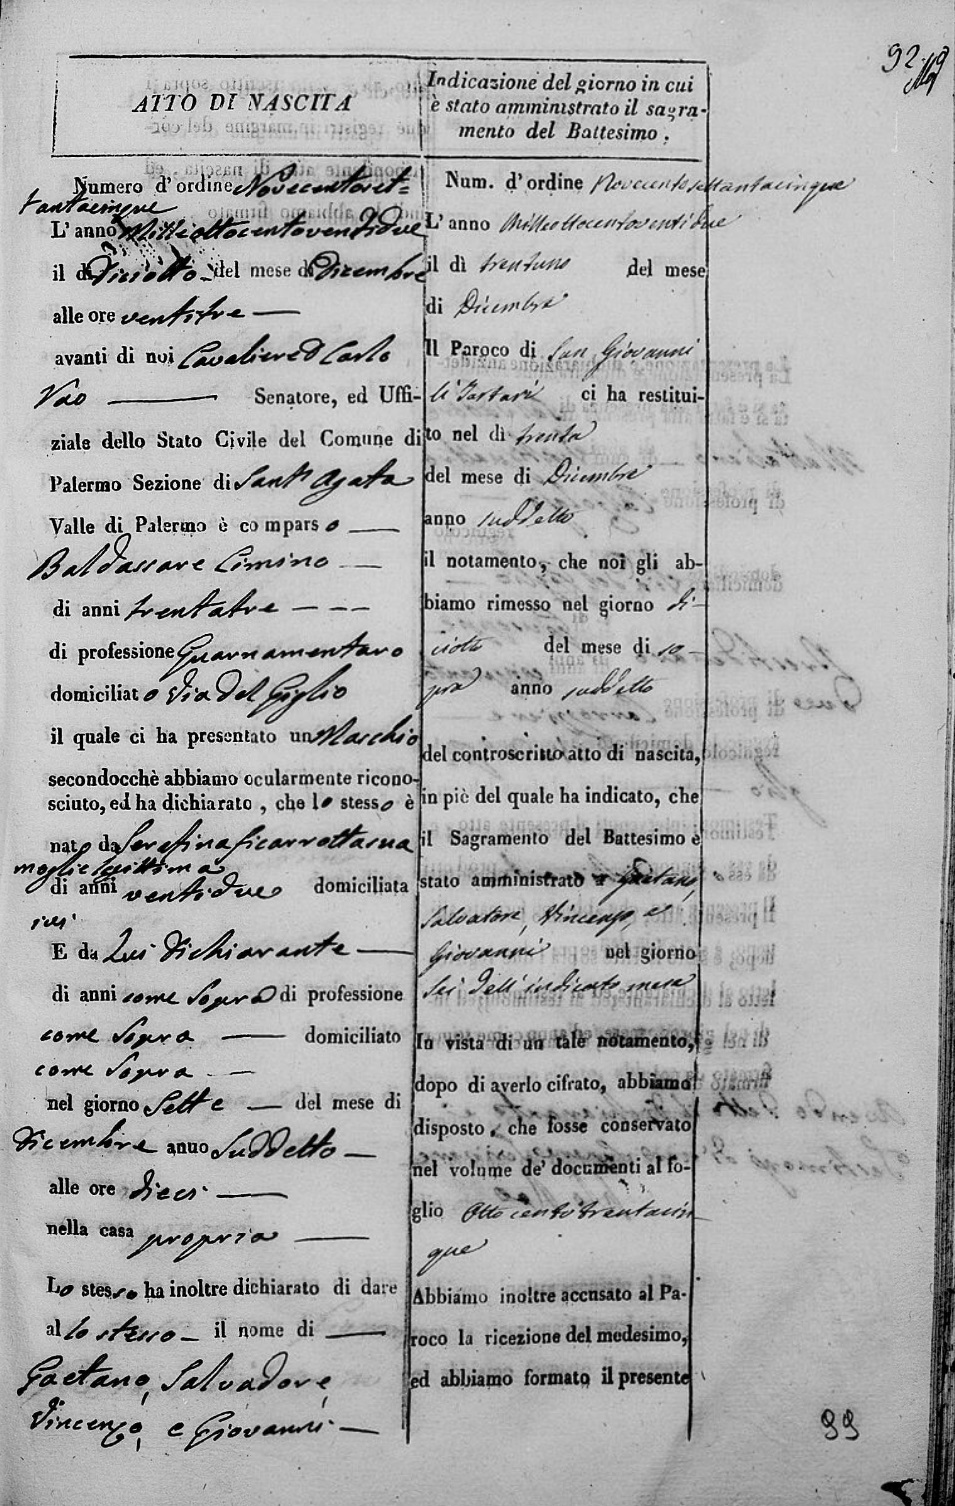 92
ATTO DI NASCITA
Numero d'ordine Novecentoset-
tantacinque
L'anno Milleottocentoventidue
il dì Diciotto del mese di Dicembre
alle ore ventitre —
avanti di noi Cavaliere D Carlo
Vao — Senatore, ed Uffi-
ziale dello Stato Civile del Comune di
Palermo Sezione di Sant' Agata
Valle di Palermo è comparso —
Baldassare Cimino —
di anni trentatre — — —
di professione Guarnamentaro
domiciliato Via del Giglio
il quale ci ha presentato un Maschio
secondocchè abbiamo ocularmente ricono-
sciuto, ed ha dichiarato, che lo stesso è
nato da Serafina Sicarrotta sua
moglie legittima
di anni ventidue domiciliata
ivi
E da Lui dichiarante —
di anni come Sopra di professione
come Sopra — domiciliato
come Sopra —
nel giorno Sette — del mese di
Dicembre anno Suddetto —
alle ore dieci —
nella casa propria —
Lo stesso ha inoltre dichiarato di dare
al lo stesso — il nome di —
Gaetano, Salvadore,
Vincenzo, e Giovanni —
Indicazione del giorno in cui
è stato amministrato il sagra-
mento del Battesimo.
Num. d'ordine Novecentosettantacinque
L'anno Milleottocentoventidue
il dì trentuno del mese
di Dicembre
Il Paroco di San Giovanni
li Tartari ci ha restitui-
to nel dì trenta
del mese di Dicembre
anno suddetto
il notamento, che noi gli ab-
biamo rimesso nel giorno di-
ciotto del mese di so-
pra anno suddetto
del controscritto atto di nascita,
in piè del quale ha indicato, che
il Sagramento del Battesimo è
stato amministrato a Gaetano,
Salvatore, Vincenzo, e
Giovanni nel giorno
Sei dell' indicato mese
In vista di un tale notamento,
dopo di averlo cifrato, abbiamo
disposto, che fosse conservato
nel volume de' documenti al fo-
glio Ottocentotrentacin-
que
Abbiamo inoltre accusato al Pa-
roco la ricezione del medesimo,
ed abbiamo formato il presente
99